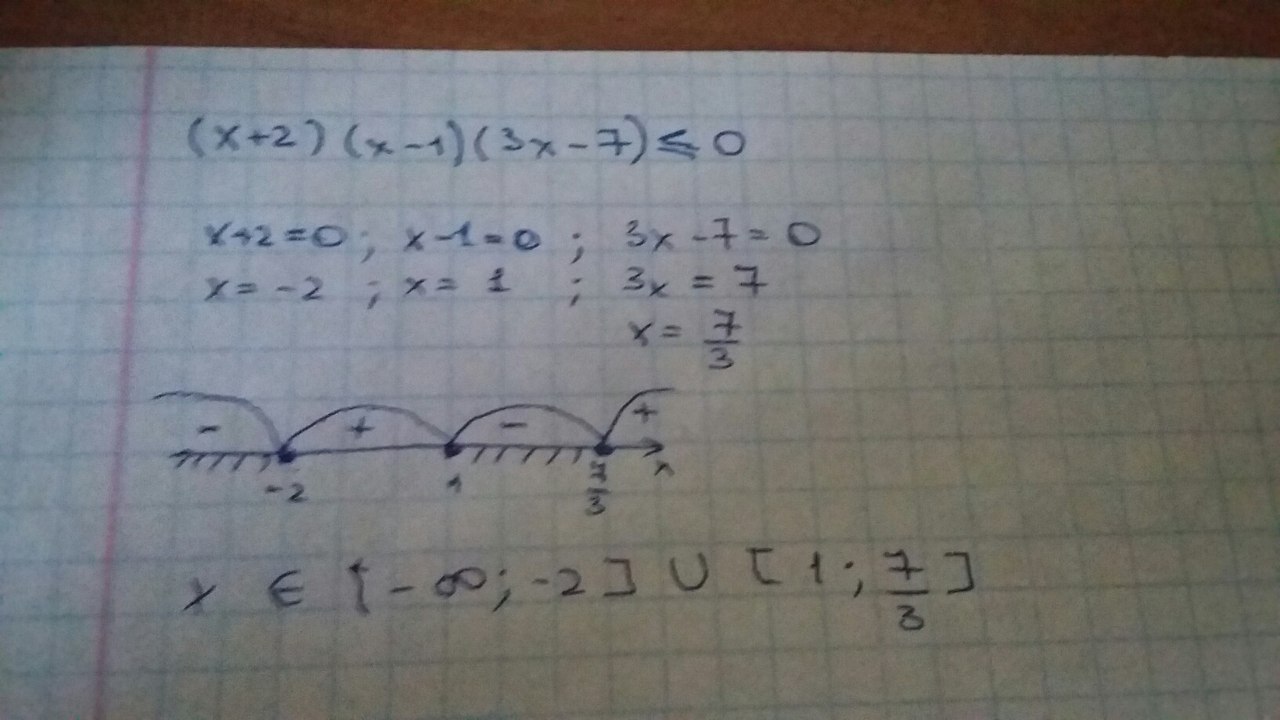 (x+2)(x-1)(3x-7)≤0
x+2=0; x-1=0 ; 3x-7=0
x=-2 ; x= 1 ; 3x = 7
x= 7/3
- + - +
-2 1 7/3 x
x ∈ [-∞;-2] ∪ [1; 7/3]